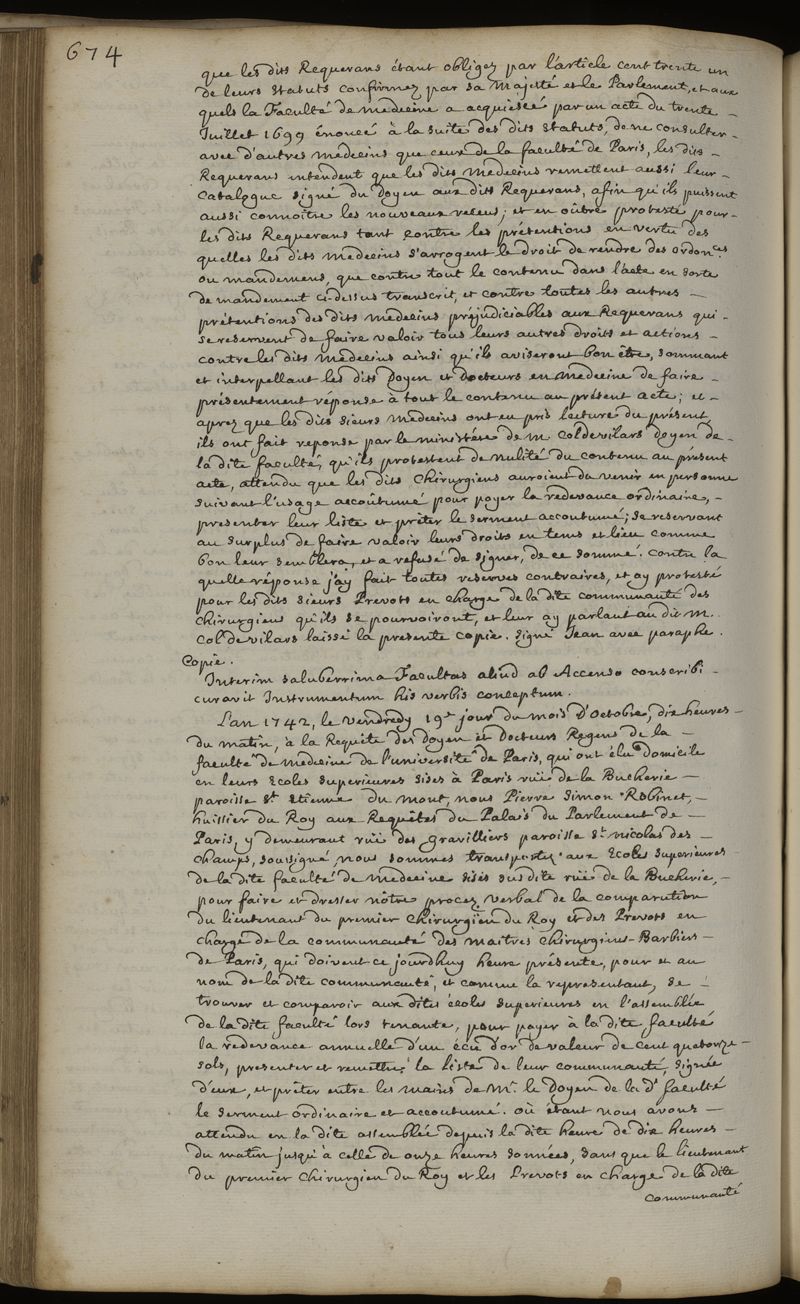 674
que les dits Requerans étant obligez par l'article cent trente un
de leurs statuts confirmez par sa Majesté et le Parlement, et aux
quels la Faculté de medecine a acquiescé par un acte du trente
Juillet 1699 énoncé à la suite des dits statuts, de ne consulter
avec d'autres medecins que ceux de la faculté de Paris, les dits
Requerans intendent que les dits Medecins remettent aussi leur
Catalogue signé du Doyen aux dits Requerans, afin qu'ils puissent
aussi connoitre les nouveaux receus; et en oûtre proteste pour
les dits Requerans tant contre les prétentions en vertu des
quelles les dits medecins s'arrogent le droit de rendre des ordon.ces
ou mandemens, que contre tout le contenu dans l'acte en sorte
de mandement ci-dessus transcrit, et contre toutes les autres
prétentions des dits medecins préjudiciables aux Requerans qui
se reservent de faire valoir tous leurs autres droits et actions
contre les dits Medecins ainsi qu'ils aviseront bon être, sommant
et interpellant les dits Doyen et Docteurs en Medecine de faire
présentement réponse à tout le contenu au présent acte; et
aprez que les dits sieurs Medecins ont eu pris lecture du présent,
ils ont fait reponse par le ministére de m. Coldevilars Doyen de
la dite faculté, qu'ils protestent de nulité du contenu au présent
acte, attendu que les dits Chirurgiens auroient du venir en personne
suivant l'usage accoûtumé pour payer la redevance ordinaire,
presenter leur liste et prêter le serment accoutumé; se reservant
au surplus de faire valoir leurs droits en tems et lieu comme
bon leur semblera, et a refusé de signer, de ce sommé. Contre la
quelle réponse j'ay fait toutes reserves contraires, et ay protesté
pour les dits sieurs Prevots en charge de la dite communauté des
Chirurgiens qu'ils se pourvoiront, et leur ay parlant au dit M.
Coldevilars laissé la presente copie. Signé Jean avec paraphe.
Copie.
Interim saluberrima Facultas aliud ab Accenso conscribi
curavit Instrumentum his verbis conceptum.
L'an 1742, le vendredy 19e jour du mois d'Octobre, dix heures
du matin, à la Requête des Doyen et Docteurs Regens de la
faculté de medecine de l'université de Paris, qui ont élu domicile
en leurs Ecoles superieures sises à Paris ruë de la Bucherie
paroisse St Etienne du mont, nous Pierre Simon Robinet,
huissier du Roy aux Requêtes du Palais du Parlement de
Paris, y demeurant ruë des gravilliers paroisse St nicolas des
champs, soussigné nous sommes transportez aux Ecoles superieures
de la dite faculté de Medecine sises susdite ruë de la Bucherie,
pour faire et dresser nôtre procez verbal de la comparution
du lieutenant du premier Chirurgien du Roy et des Prevots en
charge de la communauté des maitres Chirurgiens-Barbiers
de Paris, qui doivent ce jourdhuy heure présente, pour et au
nom de la dite communauté, et comme la representant, se
trouver et comparoir aux dites écoles superieures en l'assemblée
de la dite faculté lors tenante, pour payer à la dite faculté
la redevance annuelle d'un écu d'or de valeur de cent quatorze
sols, presenter et remettre la liste de leur communauté, signée
d'eux, et prêter entre les mains de Mr. le Doyen de la de faculté
le serment ordinaire et accoutumé. où étant nous avons
attendu en la dite assemblée depuis la dite heure de dix heures
du matin jusqu'à celle de onze heures sonnées, sans que le lieutenant
du premier Chirurgien du Roy et les Prevots en charge de la dite
Communauté